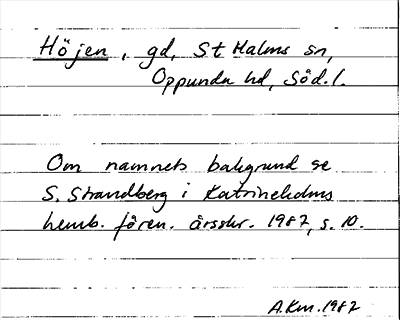 Höjen, gd, St Malms sn,
Oppunda hd, Söd.l.
Om namnets bakgrund se
S. Strandberg i Katrineholms
hemb. fören. årsskr. 1987, s. 10.
A.Km. 1987